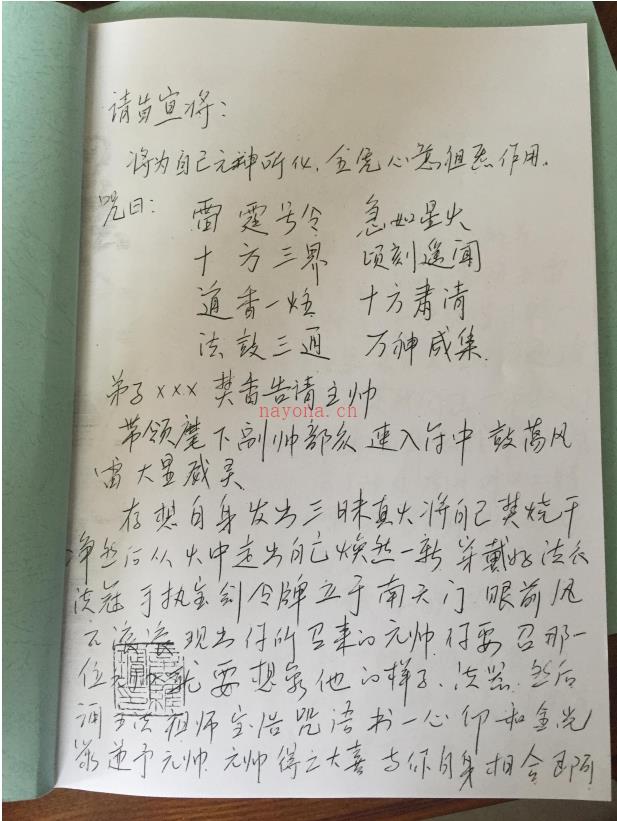 请旨宣将：
将为自己元神所化，全凭心意祖炁作用。
咒曰： 雷霆号令 急如星火
十方三界 顷刻遥闻
道香一炷 十方肃清
法鼓三通 万神咸集
弟子xxx焚香告请主帅
nayona.ch
带领麾下副帅部众 速入符中 鼓荡风
雷大显威灵
存想自身发出三昧真火将自己焚烧干
净然后从火中走出自己焕然一新 穿戴好法衣
法冠 手执宝剑令牌立于南天门 眼前风
云滚滚 现出你所召来的元帅 你要召那一
位 就要想象他的样子、法器 然后
诵 法祖师宝诰咒语书一心 和金光
递予元帅 元帅得之大喜 与你自身相合即可